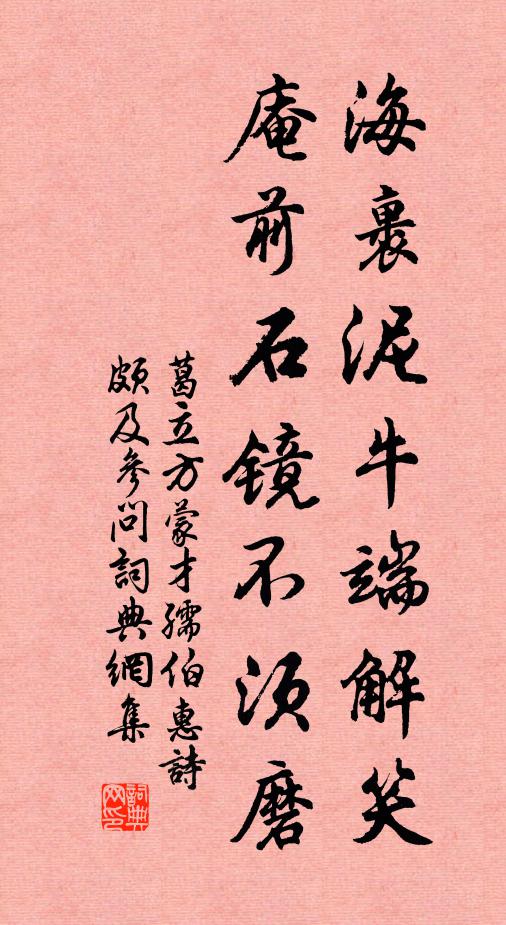 海裏泥牛端解笑
庵前石镜不须磨
葛立方蒙才孺伯惠詩
頗及参问詞典網集
詞典网印